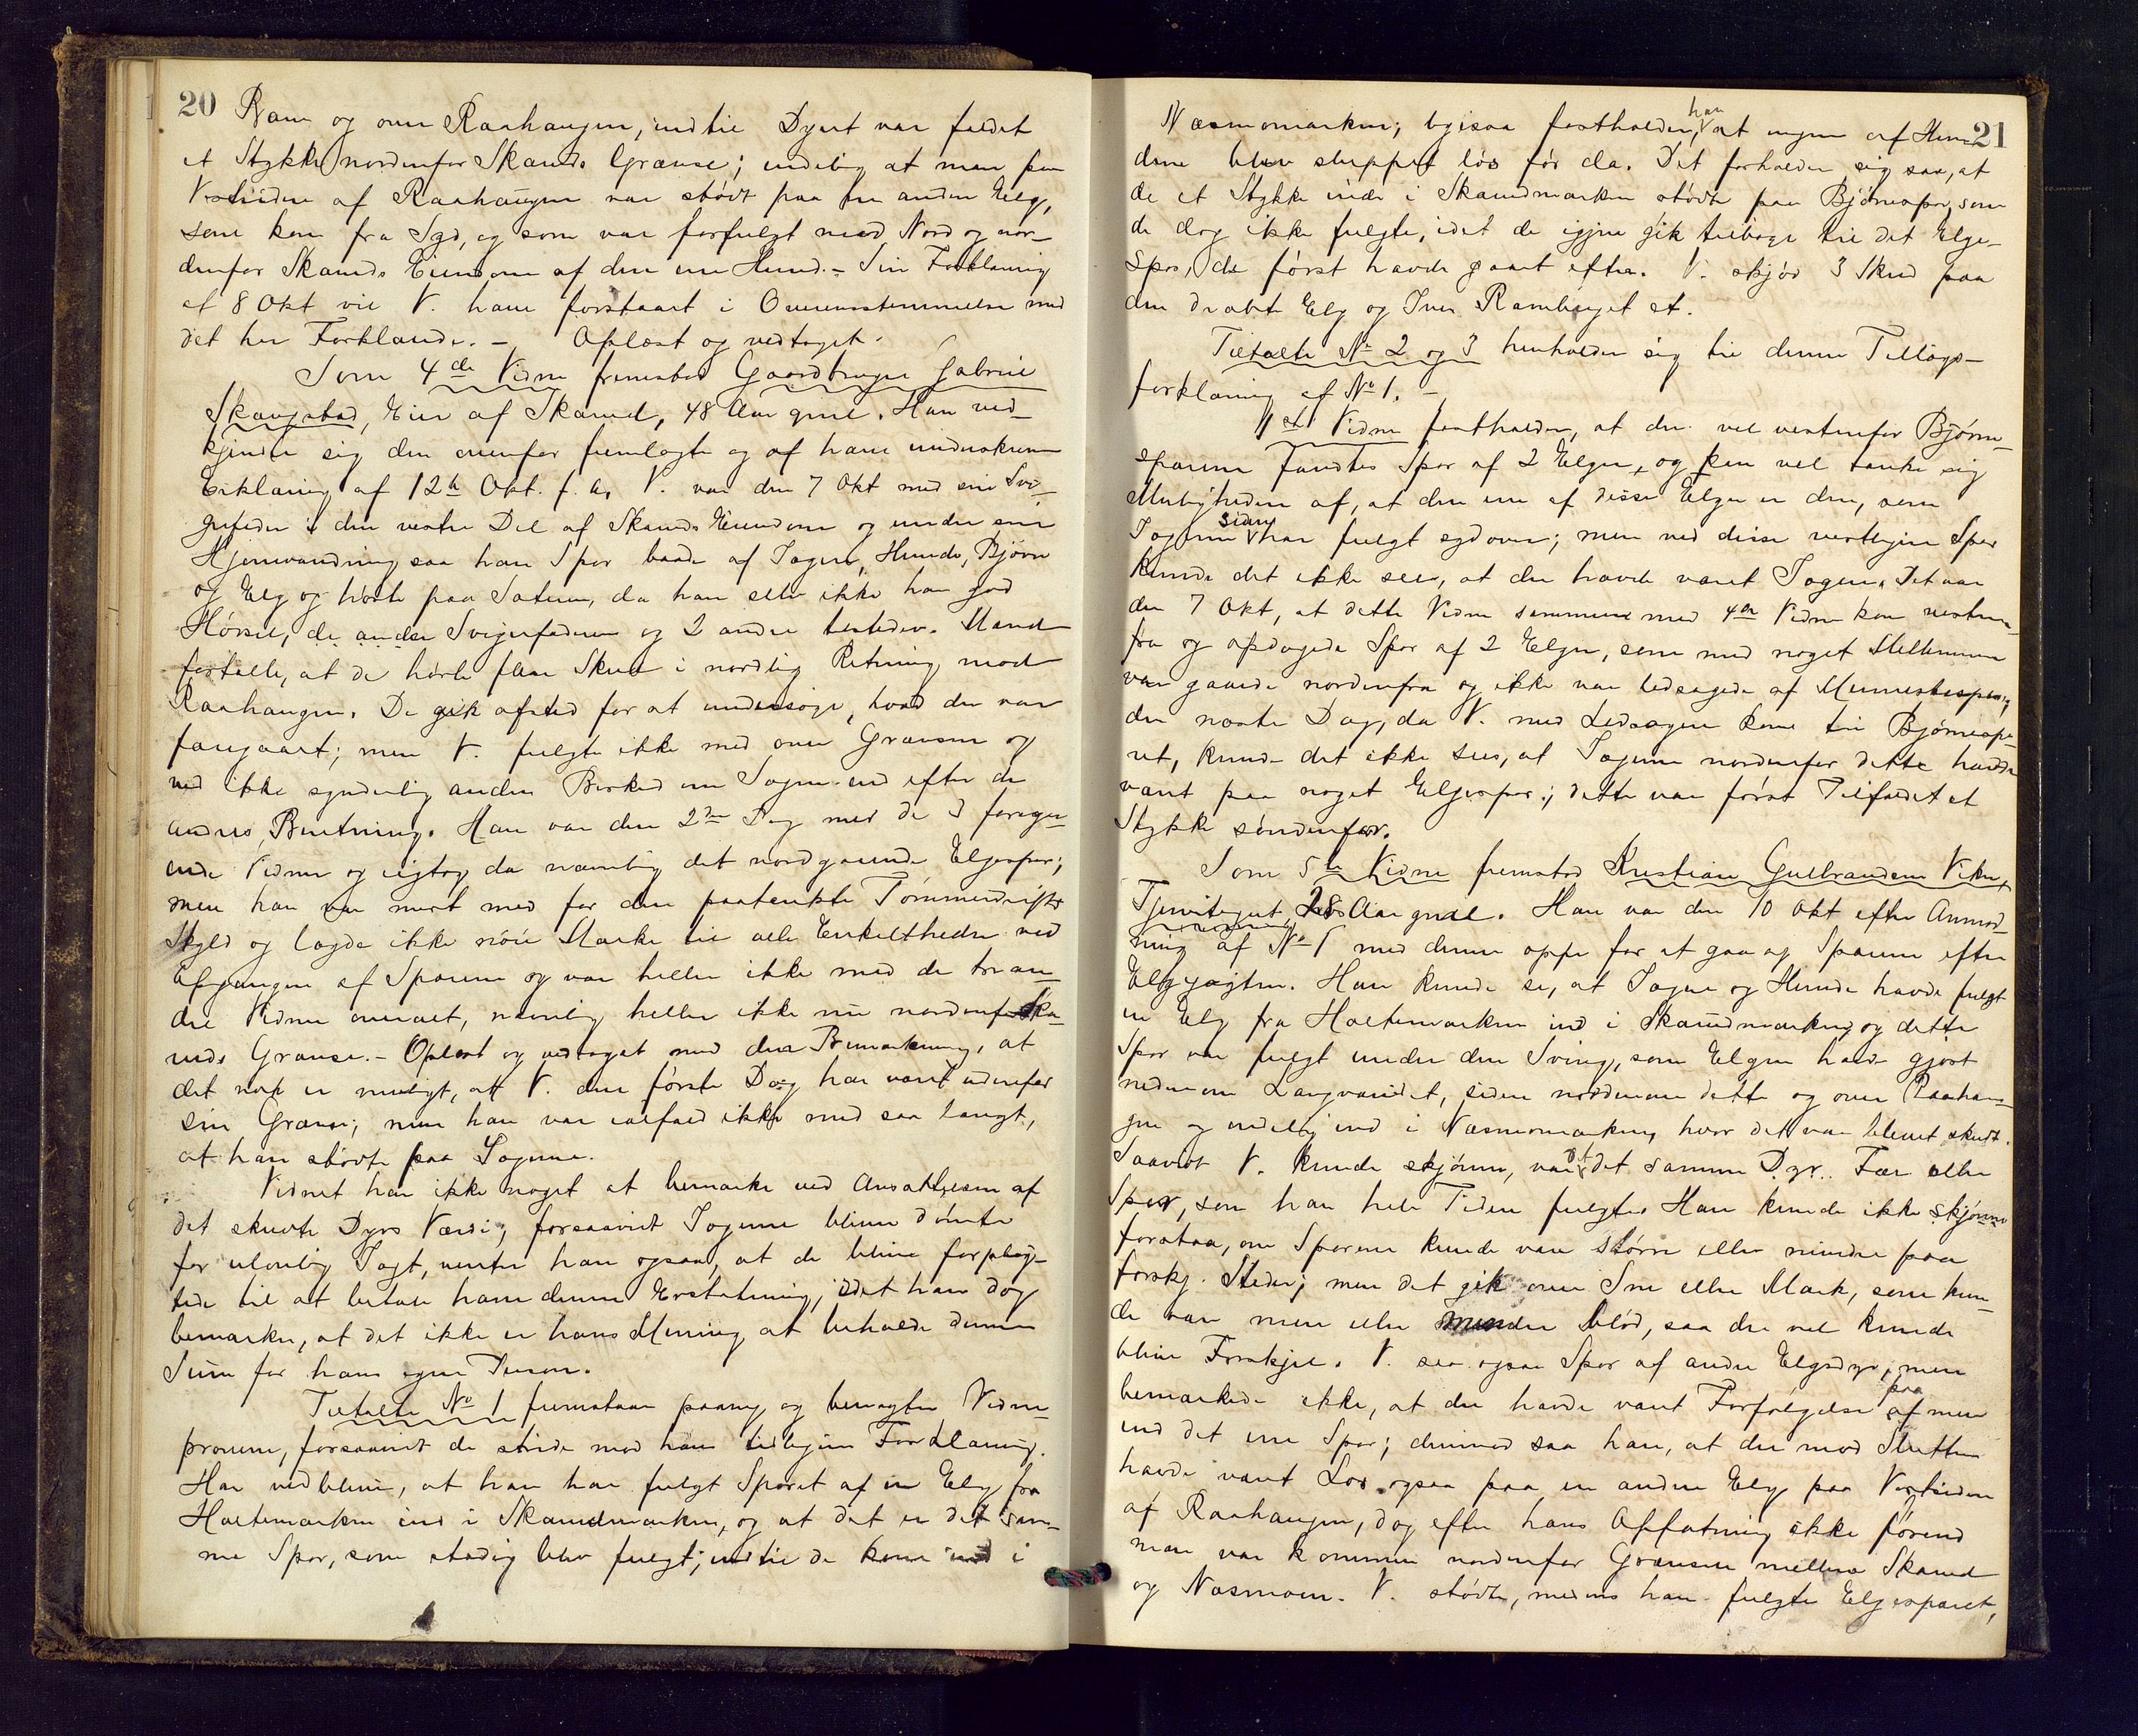 20
Ram og over Raahaugen, indtil Dyret var faldt
et Stykke nordenfor Skaruds Grænse; endelig at man paa
Vestsiden af Raahaugen var stødt paa en anden Elg,
som kom fra Syd, og som var forfulgt mod Nord og nor-
denfor Skaruds Eiendom af den ene Hund. – Sin Forklaring
af 8 Okt vil V. have forstaaet i Overensstemmelse med
det her Forklarede. – Oplæst og vedtaget.
Som 4de Vidne fremstod Gaardbruger Gabriel
Skavgstad, Eier af Skarud, 48 Aar gml. Han ved-
kjender sig den ovenfor fremlagte og af ham underskrevne
Erklæring af 12te Okt. f. A. V. var den 7 Okt med sin Svi-
gerfader i den vestre Del af Skaruds Eiendom og under sin
Hjemvandring saa han Spor baade af Jægere, Hunde, Bjørn
og Elg og hørte paa Sæteren, da han selv ikke har god
Hørsel, de andre Svigerfaderen og 2 andre tilstedev. Mænd
fortælle, at de hørte flere Skud i nordlig Retning mod
Raahaugen. De gik afsted for at undersøge, hvad der var
foregaaet; men V. fulgte ikke med over Grænsen og
ved ikke synderlig anden Besked om Jagten end efter de
andres Beretning. Han var den 2den Dag med de 3 foregaa-
ende Vidner og iagtog da nemlig det nordgaaende Elgespor;
men han var mest med for den paatænkte Tømmerdrifts
Skyld og lagde ikke nøie Mærke til alle Enkeltheder ved
Opgangen af Sporene og var heller ikke med de tre an-
dre Vidner overalt, nemlig heller ikke nu nordenfor Ska-
ruds Grænse. – Oplæst og vedtaget med den Bemærkning, at
det nok er muligt, at V. den første Dag har været udenfor
sin Grænse; men han var ialfald ikke med saa langt,
at han stødte paa Jægerne.
Vidnet har ikke noget at bemærke ved Ansættelsen af
det skudte Dyrs Værdi; forsaavidt Jægerne blive dømte
for ulovlig Jagt, venter han ogsaa, at de blive forplig-
tede til at betale ham denne Erstatning, idet han dog
bemærker, at det ikke er hans Mening at beholde denne
Sum for hans egen Person.
Tiltalte No 1 fremstaar paany og benægter Vidne-
provene, forsaavidt de stride mod hans tidligere Forklaring.
Han vedbliver, at han har fulgt Sporet af en Elg fra
Holtemarken ind i Skarudmarken, og at det er det sam-
me Spor, som stadig blev fulgt, indtil de kom ind i
21
Næsmomarken; ligesaa fastholder han, at ingen af Hun-
dene blev sluppet løs før da. Det forholder sig saa, at
de et Stykke inde i Skarudmarken stødte paa Bjørnespor, som
de dog ikke fulgte, idet de igjen gik tilbage til det Elge-
spor, de først havde gaaet efter. V. skjød 3 Skud paa
den dræbte Elg og Iver Ramberget et.
Tiltalte No 2 og 3 henholder sig til denne Tillægs-
forklaring af No 1. –
1ste Vidne fastholder, at der vel vestenfor Bjørne-
sporene fandtes Spor af 2 Elger, og kan vel tænke sig
Muligheden af, at den ene af disse Elger er den, som
Jægerne siden har fulgt sydover; men ved disse vestligere Spor
kunde det ikke sees, at der havde været Jægere. Det var
den 7 Okt, at dette Vidne sammen med 4de Vidne kom vesten-
fra og opdagede Spor af 2 Elger, som med noget Mellemrum
var gaaede nordenfra og ikke var ledsagede af Menneskespor;
den næste Dag, da V. med Ledsagere kom til Bjørnespo-
ret, kunde det ikke sees, at Jægerne nordenfor dette havde
været paa noget Elgespor; dette var først Tilfældet et
Stykke søndenfor.
Som 5te Vidne fremstod Kristian Gulbrandsen Viken,
Tjenstegut, 28 Aar gml. Han var den 10 Okt efter Anmod-
ning af No 1 med denne oppe for at gaa op Sporene efter
Elgjagten. Han kunde se, at Jægere og Hunde havde fulgt
en Elg fra Holtemarken ind i Skarudmarken, og dette
Spor var fulgt under den Sving, som Elgen havde gjort
nedenom Langvandet, siden nordenom dette og over Raahau-
gen og endelig ind i Næsmomarken, hvor det var blevet skudt.
Saavidt V. kunde skjønne, var det det samme Dyr. Fær eller
Spor, som han hele Tiden fulgte. Han kunde ikke skjønne
forstaa, om Sporene kunde være større eller mindre paa
forskj. Steder; men det gik over Sne eller Mark, som kun-
de være mere eller mindre blød, saa der vel kunde
blive Forskjel. V. saa ogsaa Spor af andre Elgsdyr, men
bemærkede ikke, at der havde været Forfølgelse paa af mere
end det ene Spor; derimod saa han, at der mod Slutten
havde været Los ogsaa paa en anden Elg paa Vestsiden
af Raahaugen, dog efter hans Opfatning ikke førend
man var kommen nordenfor Grænsen mellem Skarud
og Næsmoen. V. stødte, medens han fulgte Elgesporet,